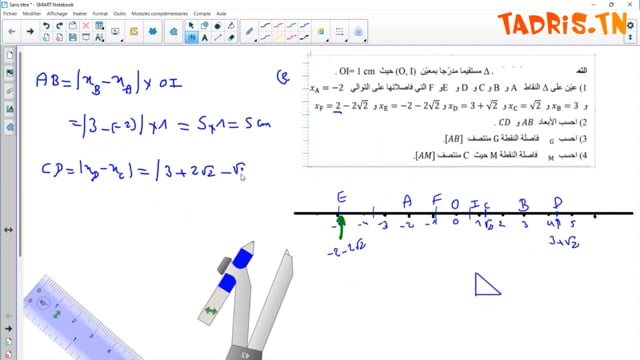 Sans titre * - SMART Notebook
Fichier Edition Affichage Insertion Format Outils Modules complémentaires Dessin Réponse Aide
TADRIS.TN
AB = |x_B - x_A| × OI
= |3 - (-2)| × 1 = 5 × 1 = 5 cm
CD = |x_D - x_C| = |3 + 2√2 - √
Δ مستقيما مدرّجا بمعيّن (O, I) حيث OI= 1 cm.
1) عيّن على Δ النقاط A و B و C و D و E و F التي فاصلاتها على التوالي x_A = −2
و x_B = 3 و x_C = √2 و x_D = 3 + √2 و x_E = −2 − 2√2 و x_F = 2 − 2√2
2) احسب الأبعاد AB و CD .
3) احسب x_G فاصلة النقطة G منتصف [AB].
4) احسب x_M فاصلة النقطة M حيث C منتصف [AM].
E A F O I C B D
-4 -3 -2 -1 0 1 √2 2 3 4 5
-2-2√2 3+√2